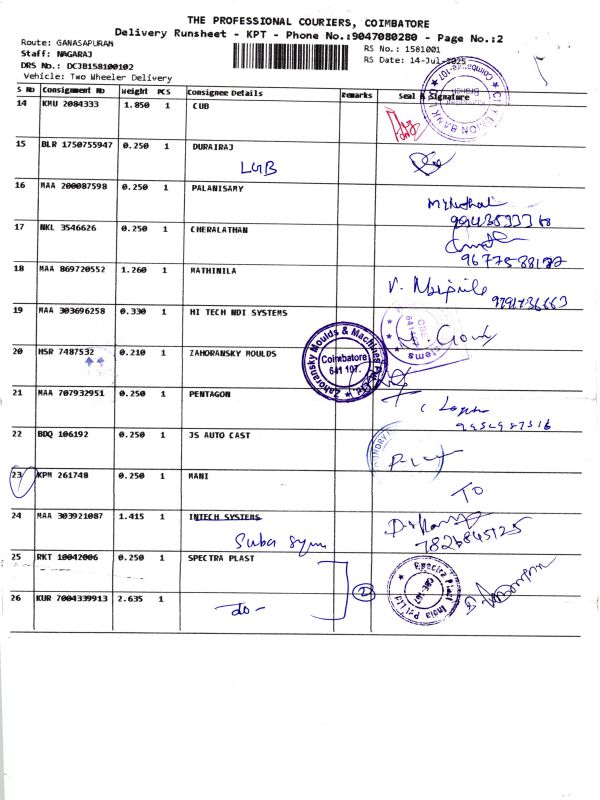 THE PROFESSIONAL COURIERS, COIMBATORE
Delivery Runsheet - KPT - Phone No.:9047080280 - Page No.:2
Route: GANASAPURAM
Staff: NAGARAJ
DRS No.: DCJB158100102
Vehicle: Two Wheeler Delivery
RS No.: 1581001
RS Date: 14-Jul-2025
S No Consignment No Weight PCS Consignee Details Remarks Seal & Signature
14 KMU 2084333 1.850 1 CUB
15 BLR 1750755947 0.250 1 DURAIRAJ
LGB
16 MAA 200087598 0.250 1 PALANISAMY
17 NKL 3546626 0.250 1 CHERALATHAN
9677588182
18 MAA 869720552 1.260 1 MATHINILA
19 MAA 303696258 0.330 1 HI TECH NDI SYSTEMS
20 HSR 7487532 0.210 1 ZAHORANSKY MOULDS
Zahoransky Moulds & Machines Pvt. Ltd.
Coimbatore
641 107.
21 MAA 707932951 0.250 1 PENTAGON
22 BDQ 106192 0.250 1 JS AUTO CAST
23 KPM 261748 0.250 1 MANI
TO
24 MAA 303921087 1.415 1 INTECH SYSTEMS
7826845125
25 RKT 10042006 0.250 1 SPECTRA PLAST
Spectra Plast India Pvt Ltd
26 KUR 7004339913 2.635 1
-do-
2